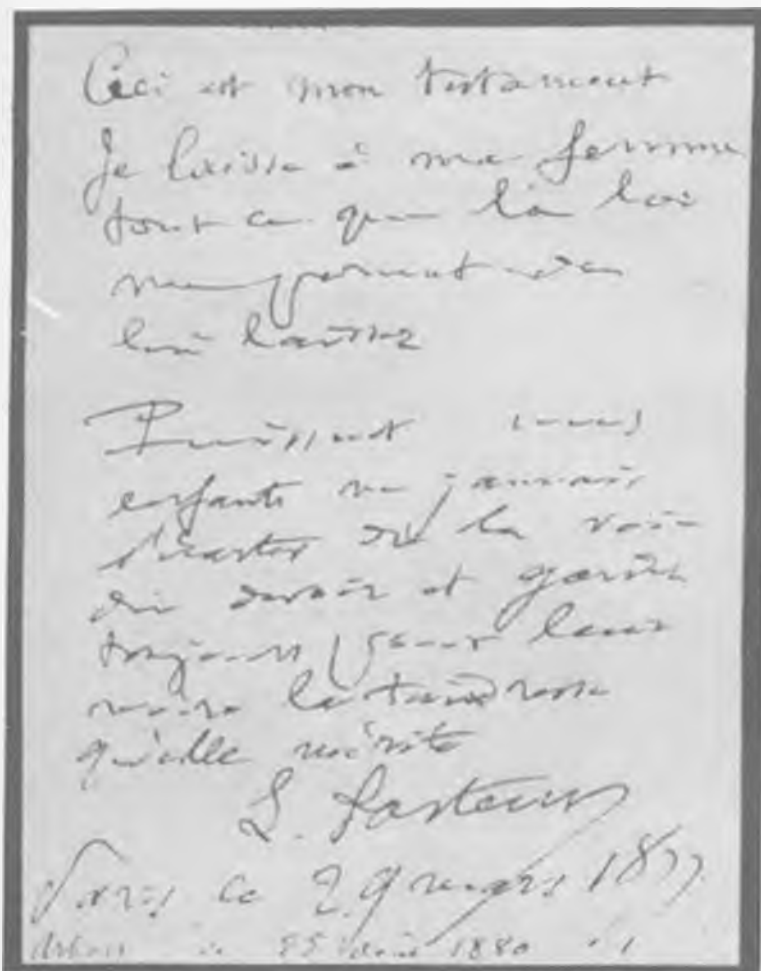 Ceci est mon testament
Je laisse à ma femme
tout ce que la loi
me permet de
lui laisser
Puissent mes
enfants ne jamais
s'écarter de la voie
du devoir et garder
toujours pour leur
mère la tendresse
qu'elle mérite
L. Pasteur
Paris ce 29 mars 1877
Arbois 1880